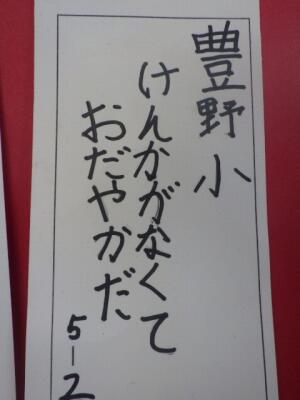 豊野小
けんかがなくて
おだやかだ
5-2